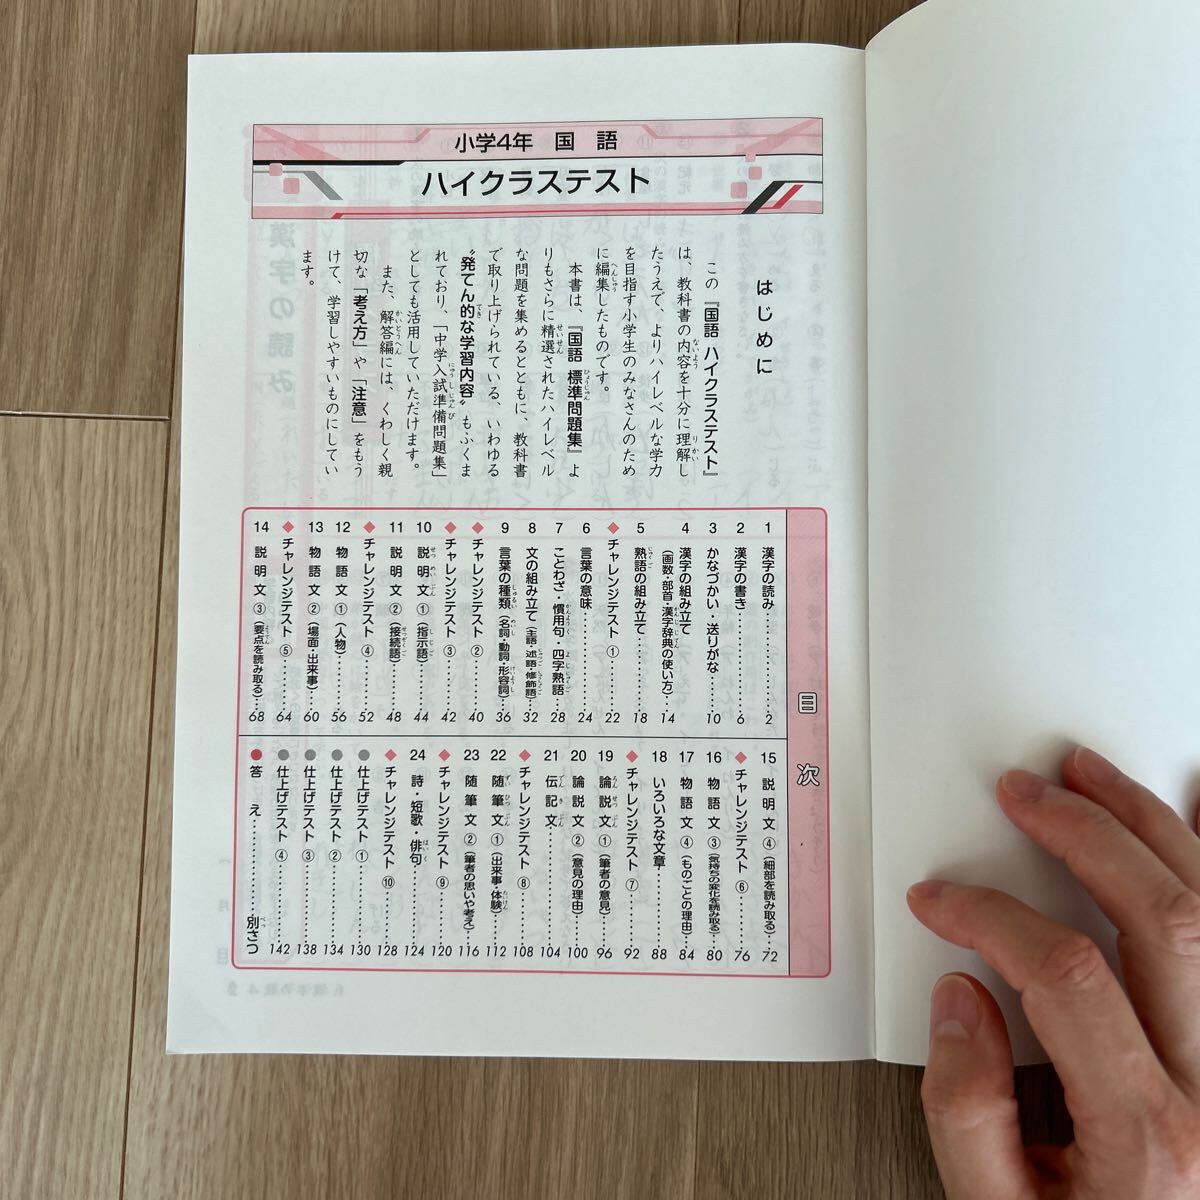 小学4年 国語
ハイクラステスト
はじめに
この『国語 ハイクラステスト』
は、教科書の内容を十分に理解し
たうえで、よりハイレベルな学力
を目指す小学生のみなさんのため
に編集したものです。
本書は、『国語 標準問題集』よ
りもさらに精選されたハイレベル
な問題を集めるとともに、教科書
で取り上げられている、いわゆる
“発てん的な学習内容”もふくま
れており、「中学入試準備問題集」
としても活用していただけます。
また、解答編には、くわしく親
切な「考え方」や「注意」をもう
けて、学習しやすいものにしてい
ます。
目次
1 漢字の読み……2
2 漢字の書き……6
3 かなづかい・送りがな……10
4 漢字の組み立て
(画数・部首・漢字辞典の使い方)……14
5 熟語の組み立て……18
◆ チャレンジテスト①……22
6 言葉の意味……24
7 ことわざ・慣用句・四字熟語……28
8 文の組み立て(主語・述語・修飾語)……32
9 言葉の種類(名詞・動詞・形容詞)……36
◆ チャレンジテスト②……40
◆ チャレンジテスト③……42
10 説明文①(指示語)……44
11 説明文②(接続語)……48
◆ チャレンジテスト④……52
12 物語文①(人物)……56
13 物語文②(場面・出来事)……60
◆ チャレンジテスト⑤……64
14 説明文③(要点を読み取る)……68
15 説明文④(細部を読み取る)……72
◆ チャレンジテスト⑥……76
16 物語文③(気持ちの変化を読み取る)……80
17 物語文④(ものごとの理由)……84
18 いろいろな文章……88
◆ チャレンジテスト⑦……92
19 論説文①(筆者の意見)……96
20 論説文②(意見の理由)……100
21 伝記文……104
◆ チャレンジテスト⑧……108
22 随筆文①(出来事・体験)……112
23 随筆文②(筆者の思いや考え)……116
◆ チャレンジテスト⑨……120
24 詩・短歌・俳句……124
◆ チャレンジテスト⑩……128
● 仕上げテスト①……130
● 仕上げテスト②……134
● 仕上げテスト③……138
● 仕上げテスト④……142
● 答え……別さつ